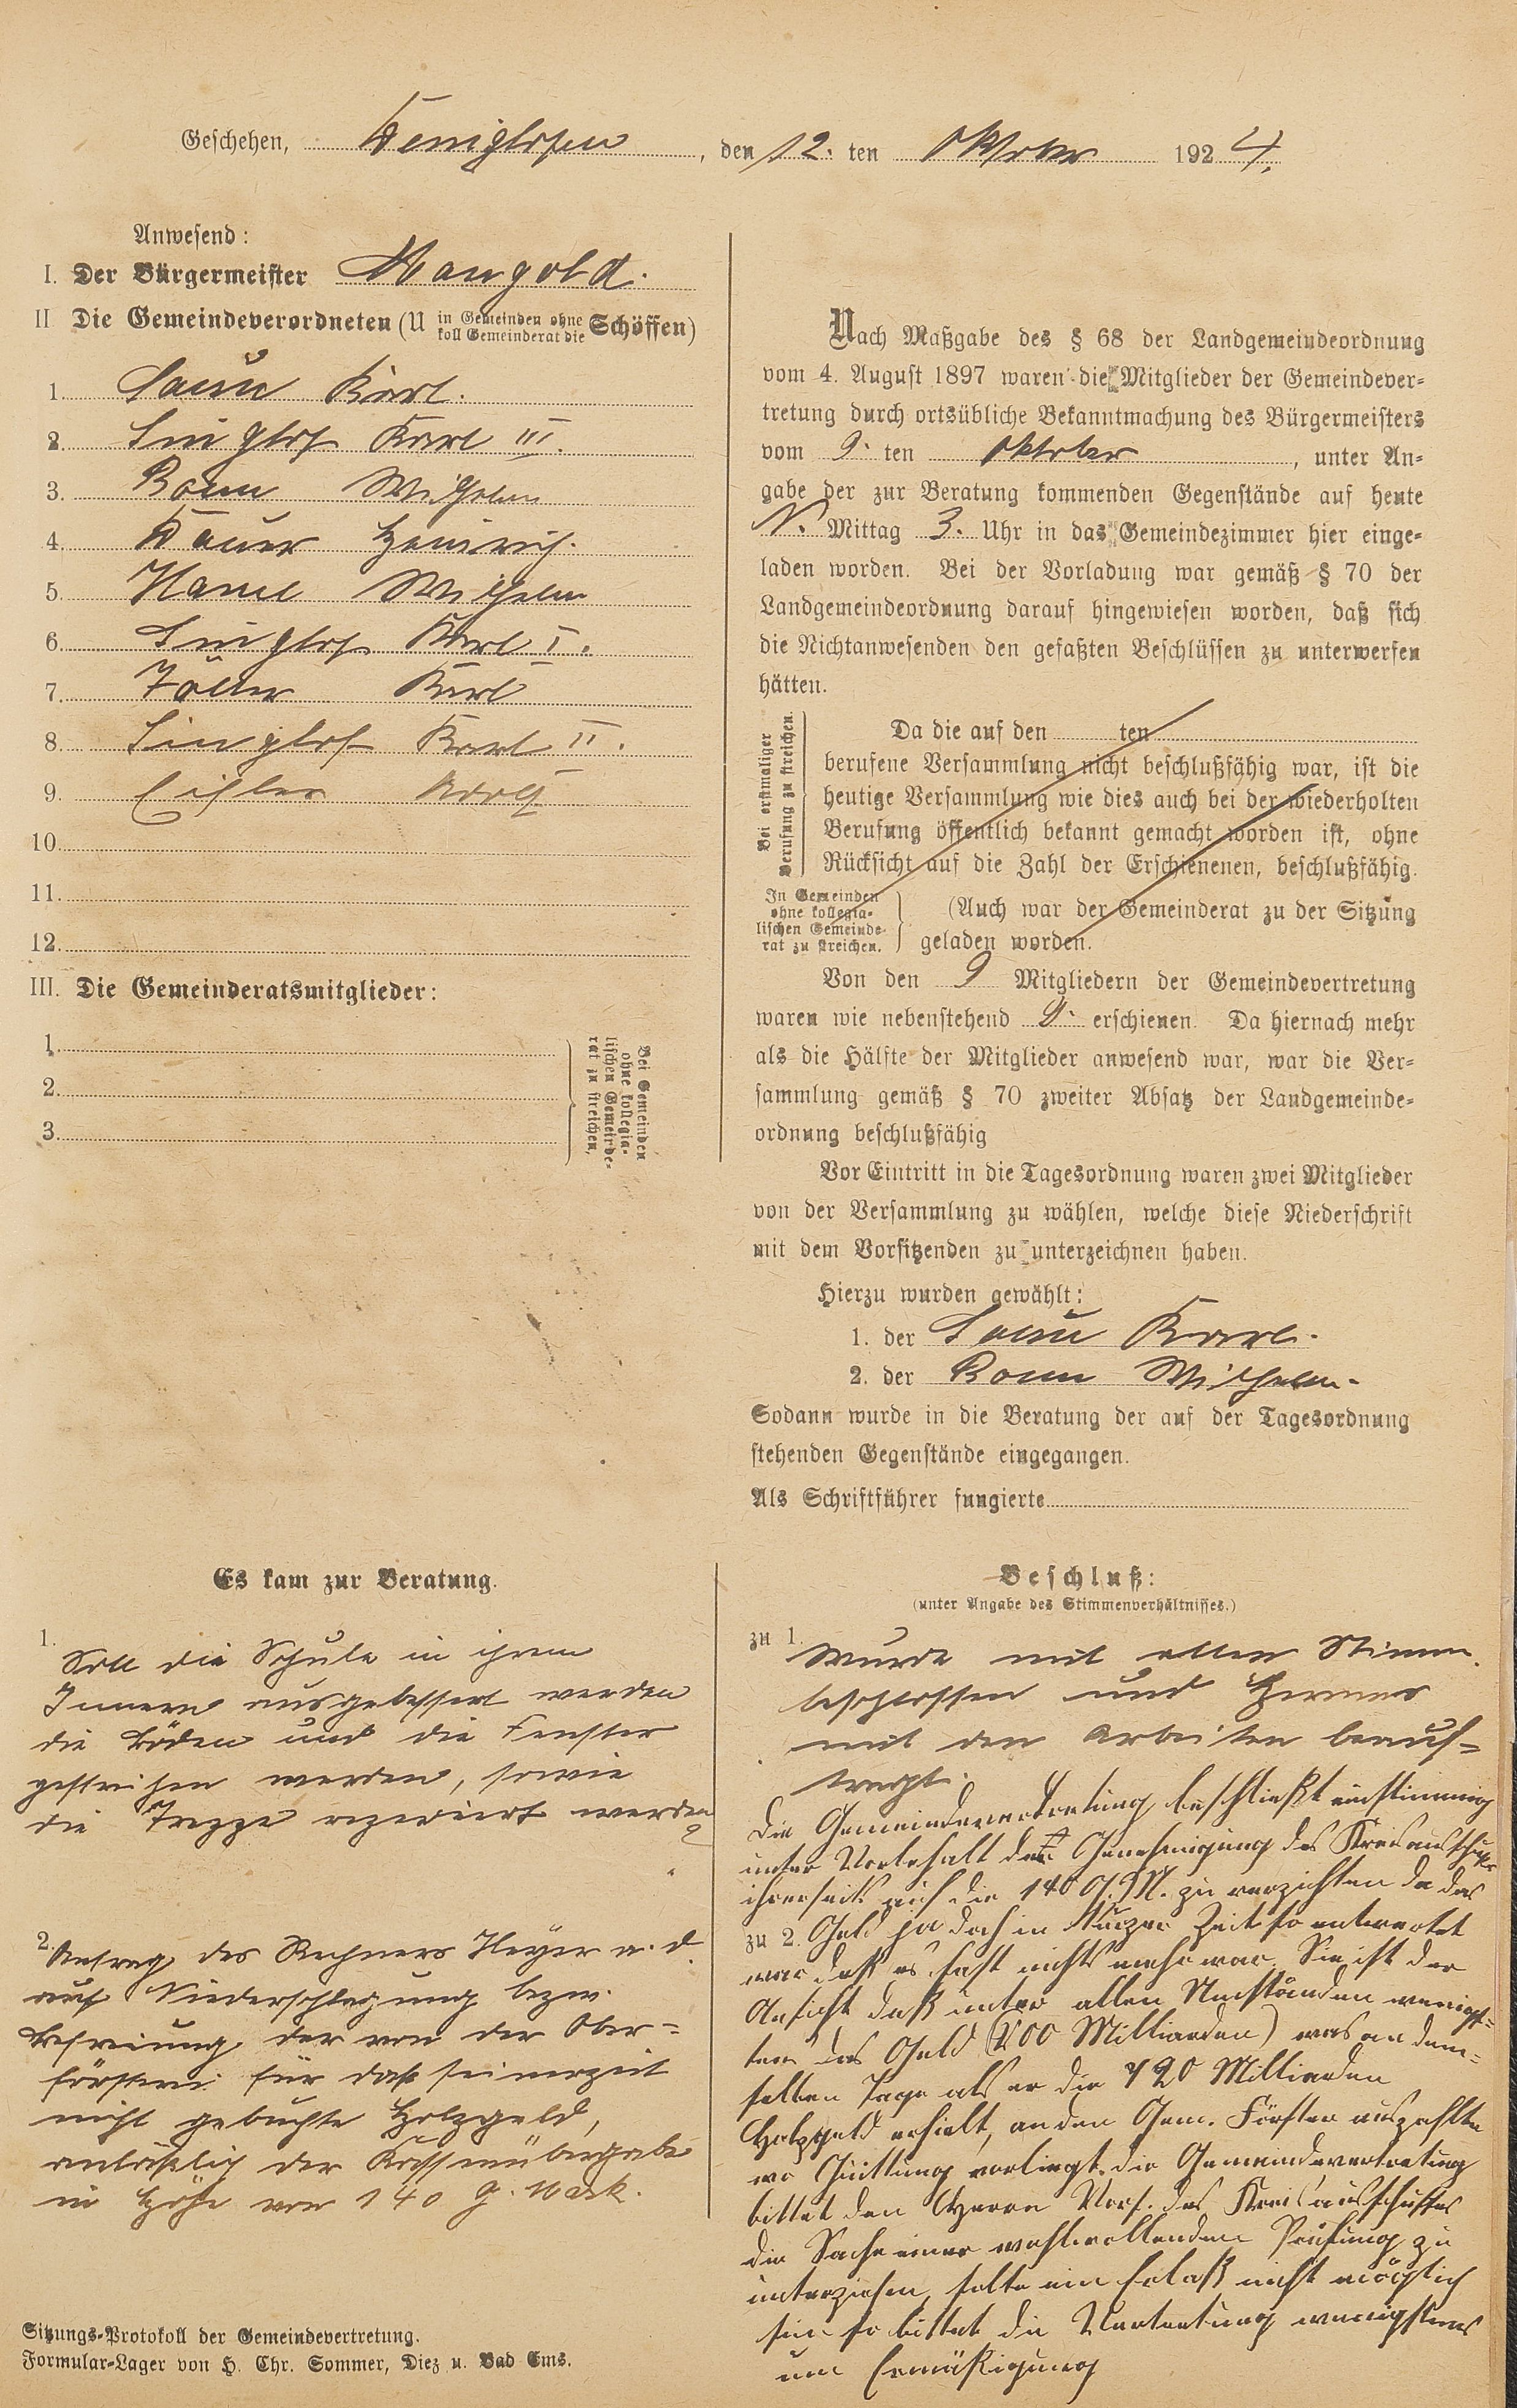 Geschehen, Könighofen, den 12. ten Oktober 1924.
Anwesend:
I. Der Bürgermeister Mangold.
II Die Gemeindeverordneten (U in Gemeinden ohne koll Gemeinderat die Schöffen)
1. Karl.
2. Singhof Karl III.
3. Bonn Wilhelm
4. Bauer Heinrich.
5. Wilhelm
6. Singhof Karl I.
7. Zöller Karl
8. Singhof Karl II.
9. Adolf
10.
11.
12.
III. Die Gemeinderatsmitglieder:
1.
2.
3.
Bei Gemeinden
ohne kollegia-
lischen Gemeinde-
rat zu streichen.
Nach Maßgabe des § 68 der Landgemeindeordnung
vom 4. August 1897 waren die Mitglieder der Gemeindever-
tretung durch ortsübliche Bekanntmachung des Bürgermeisters
vom 9. ten Oktober, unter An-
gabe der zur Beratung kommenden Gegenstände auf heute
N. Mittag 3. Uhr in das Gemeindezimmer hier einge-
laden worden. Bei der Vorladung war gemäß § 70 der
Landgemeindeordnung darauf hingewiesen worden, daß sich
die Nichtanwesenden den gefaßten Beschlüssen zu unterwerfen
hätten.
Bei erstmaliger
Berufung zu streichen.
Da die auf den ten
berufene Versammlung nicht beschlußfähig war, ist die
heutige Versammlung wie dies auch bei der wiederholten
Berufung öffentlich bekannt gemacht worden ist, ohne
Rücksicht auf die Zahl der Erschienenen, beschlußfähig.
In Gemeinden
ohne kollegia-
lischen Gemeinde-
rat zu streichen.
(Auch war der Gemeinderat zu der Sitzung
geladen worden.
Von den 9 Mitgliedern der Gemeindevertretung
waren wie nebenstehend 9. erschienen. Da hiernach mehr
als die Hälfte der Mitglieder anwesend war, war die Ver-
sammlung gemäß § 70 zweiter Absatz der Landgemeinde-
ordnung beschlußfähig
Vor Eintritt in die Tagesordnung waren zwei Mitglieder
von der Versammlung zu wählen, welche diese Niederschrift
mit dem Vorsitzenden zu unterzeichnen haben.
Hierzu wurden gewählt:
1. der Karl.
2. der Bonn Wilhelm.
Sodann wurde in die Beratung der auf der Tagesordnung
stehenden Gegenstände eingegangen.
Als Schriftführer fungierte
Es kam zur Beratung.
1.
Soll die Schule in ihrem
Innern ausgebessert werden
die Böden und die Fenster
gestrichen werden, sowie
die Treppe repariert werden
?
2. Antrag des Rechners Meyer a. d.
auf Niederschlagung bezw.
Befreiung der von der Ober-
försterei für das seinerzeit
nicht gebuchte Holzgeld,
anläßlich der Kassenübergabe
in Höhe von 140 G. Mark.
Beschluß:
(unter Angabe des Stimmenverhältnisses.)
zu 1.
Wurde mit allen Stimm.
beschlossen und
mit den Arbeiten beauf-
tragt.
Die Gemeindevertretung beschließt einstimmig
unter Vorbehalt der Genehmigung des Kreisausschuss
ihrerseits auf die 140 G.M. zu verzichten da das
zu 2. Geld ja doch in kurzer Zeit so entwertet
war daß es fast nichts mehr war. Sie ist der
Ansicht daß unter allen Umständen wenigs-
tens das Geld (200 Milliarden) was an dem-
selben Tage als er die 420 Milliarden
Holzgeld erhielt, an den Gem. Förster auszahlte
wo Quittung vorliegt. Die Gemeindevertretung
bittet den Herrn Vors. des Kreisausschusses
die Sache einer wohlwollenden Prüfung zu
unterziehen, sollte ein Erlaß nicht möglich
sein so bittet die Vertretung wenigstens
um Ermäßigung
Sitzungs-Protokoll der Gemeindevertretung.
Formular-Lager von H. Chr. Sommer, Diez u. Bad Ems.